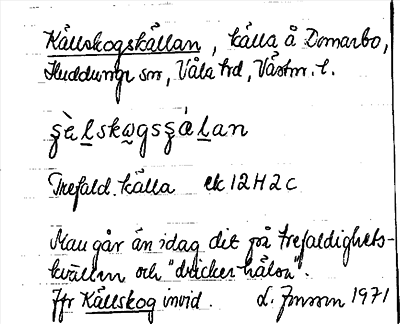 Källskogskällan, källa å Domarbo,
Huddunge sn, Våla hd, Västm. l.
Trefald. källa ek 12H2c
Man går än idag dit på trefaldighets-
kvällen och "dricker hälsa".
Jfr Källskog invid. L. Jonsson 1971